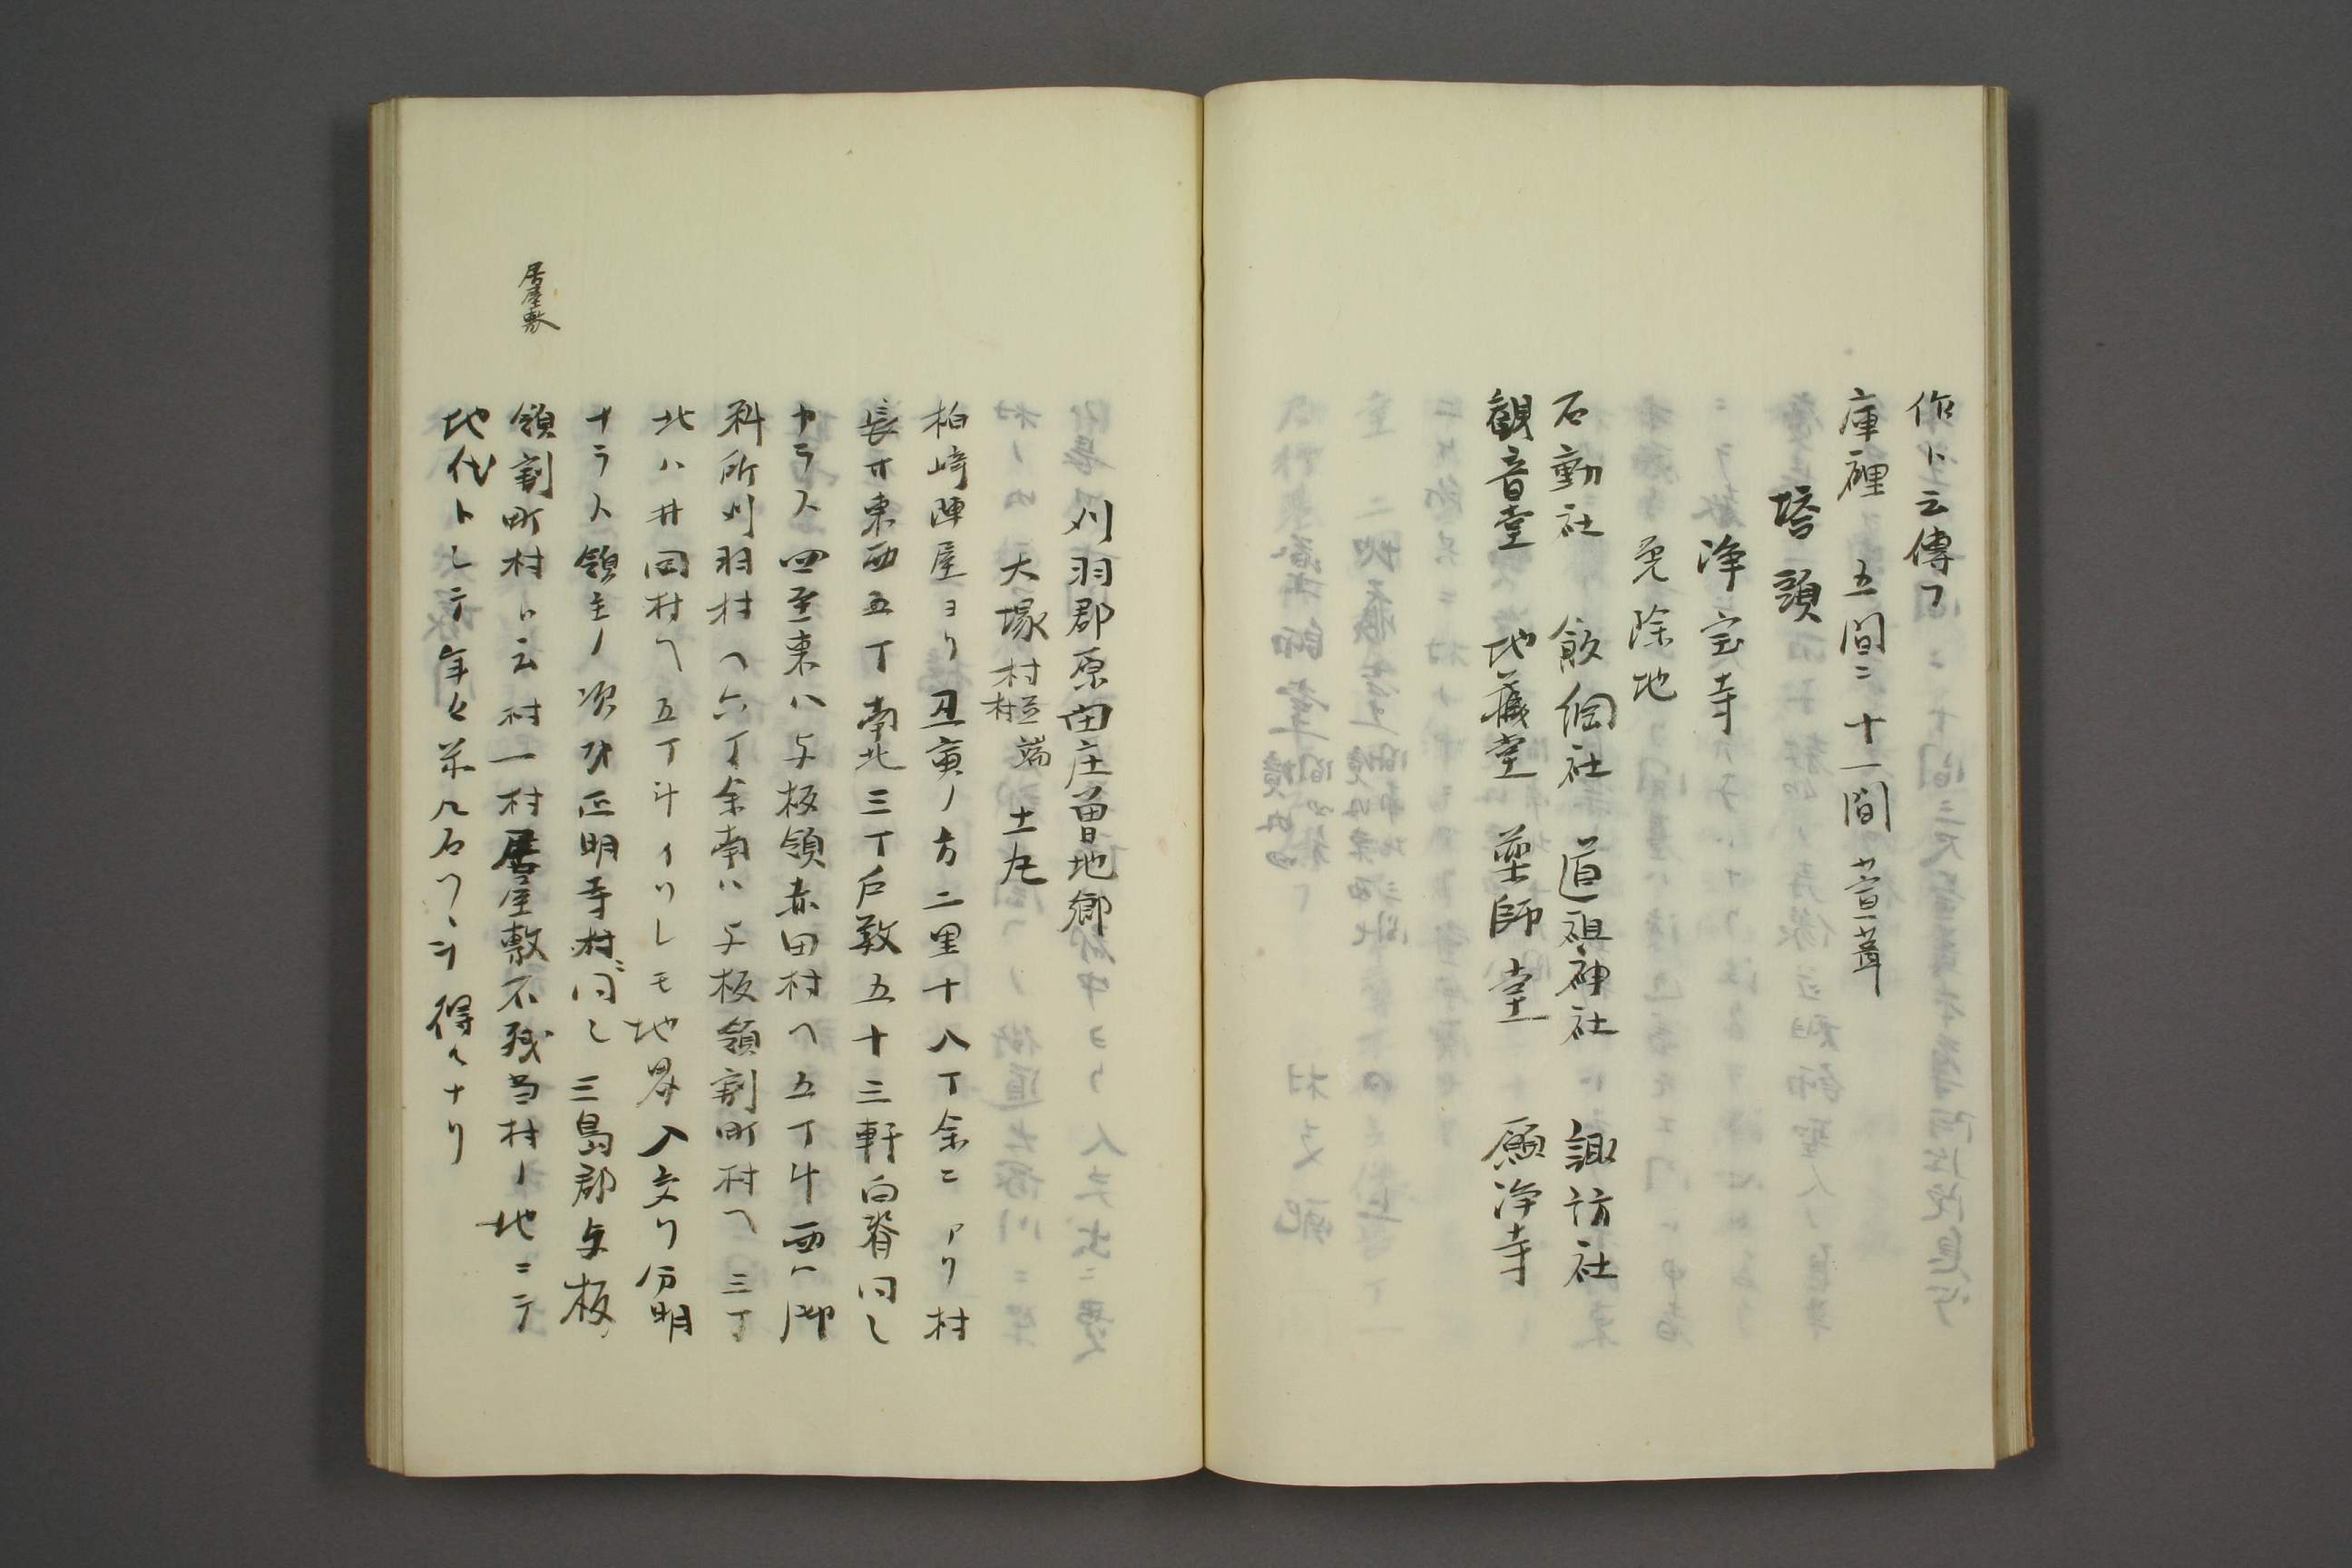 作ト云傳フ
庫裡　五間ニ十一間　萱葺
塔頭
浄宝寺
免除地
石動社　飯綱社　道祖神社　諏訪社
観音堂　地蔵堂　薬師堂　願浄寺
刈羽郡原田庄曽地郷
大塚村　村並　端村　土丸
柏崎陣屋ヨリ丑寅ノ方二里十八丁余ニアリ村
長サ東西五丁南北三丁戸数五十三軒向背同シ
カラス四至東ハ与板領赤田村ヘ五丁斗西ハ御
料所刈羽村ヘ六丁余南ハ与板領割町村ヘ三丁
北ハ井岡村ヘ五丁斗イツレモ地界入交リ分明
ナラス領主ノ次第正明寺村ニ同シ三島郡与板
領割町村ト云村一村居屋敷不残当村ノ地ニテ
地代トシテ年々米几石ツヽヲ得ルナリ
居屋敷